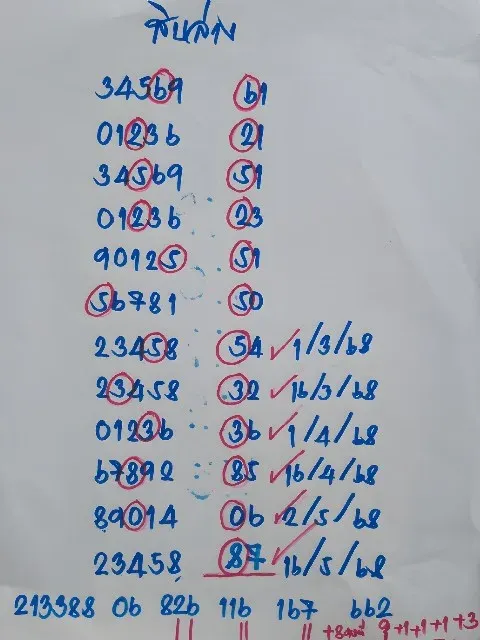 สิบล่าง
34569 61
01236 21
34569 51
01236 23
90125 51
56781 50
23458 54 ✓ 1/3/68
23458 32 ✓ 16/3/68
01236 36 ✓ 1/4/68
67892 85 ✓ 16/4/68
89014 06 ✓ 2/5/68
23458 87 ✓ 16/5/68
213388 06 826 116 167 662
+8 9+1+1+1+3